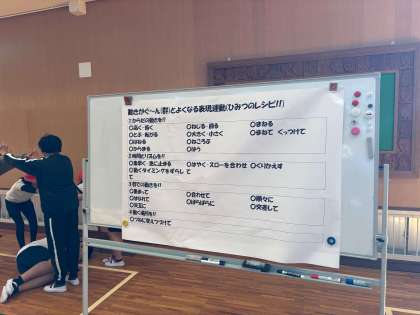 動きがぐ〜ん(群)とよくなる表現運動(ひみつのレシピ!!)
1からだの動きを!!
○高く・低く ○ねじる・回る ○まねる
○とぶ・転がる ○大きく・小さく ○まねて くっつけて
○はねる ○ころがる
○からまる ○ゆう
2時間とリズムを!!
○素早く 急に止まる ○はやく・スローを合わせて ○くりかえす
○動くタイミングをずらして
3群での動きを!!
○集まって ○合わせて ○順々に
○はなれて ○ばらばらに ○交差して
○交互に
4動く場所を!!
○つねに変えつづけて